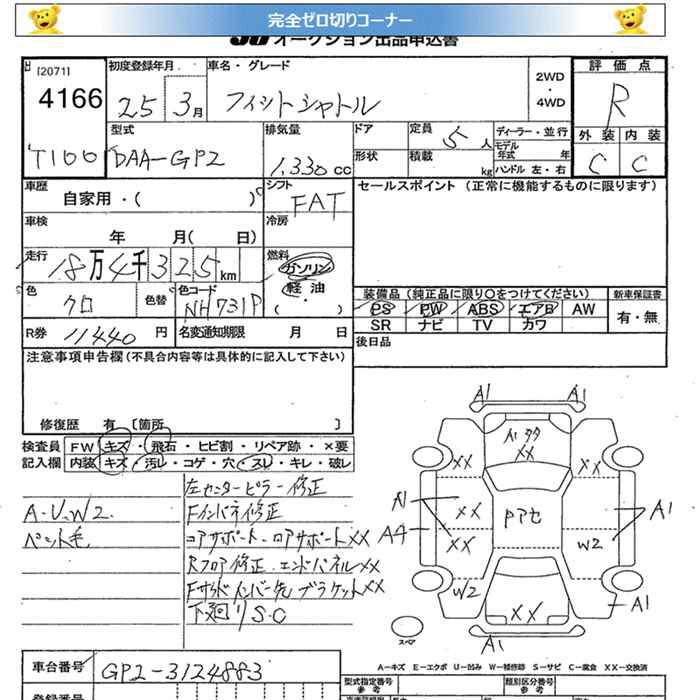 完全ゼロ切りコーナー
オークション出品申込書
[2071]
4166
初度登録年月
25 3月
車名・グレード
フィットシャトル
2WD
・
4WD
評価点
R
T100
型式
DAA-GP2
排気量
1,330 cc
ドア
形状
定員 5 人
積載 kg
ディーラー・並行
モデル年式 年
ハンドル 左・右
外装 内装
C C
車歴
自家用・( )
シフト
FAT
セールスポイント (正常に機能するものに限ります)
車検
年 月( 日)
冷房
走行
18万4千325km
燃料
ガソリン
軽油
( ・ )
色
クロ
色替
色コード
NH731P
装備品(純正品に限り○をつけてください)
新車保証書
PS PW ABS エアB AW
SR ナビ TV カワ
有・無
R券 11440 円
名変通知期限 月 日
後日品
注意事項申告欄(不具合内容等は具体的に記入して下さい)
修復歴 有 [箇所 ]
検査員記入欄
FW キズ・飛石・ヒビ割・リペア跡・×要
内装 キズ・汚レ・コゲ・穴・スレ・キレ・破レ
左センターピラー修正
A.U.W2
Fインパネ修正
ペット毛
コアサポート・ロアサポートXX
Rフロア修正.エンドパネルXX
Fサイドメンバー先ブラケットXX
下廻りS.C
A1 A1
A1 XX
XX XX
XX
XX
A4
A1
W2
W2
XX
A1
A1
スペア
A―キズ E―エクボ U―凹み W―補修跡 S―サビ C―腐食 XX―交換済
車台番号 GP2-3124883
型式指定番号
参考
類別区分番号
参考
登録番号